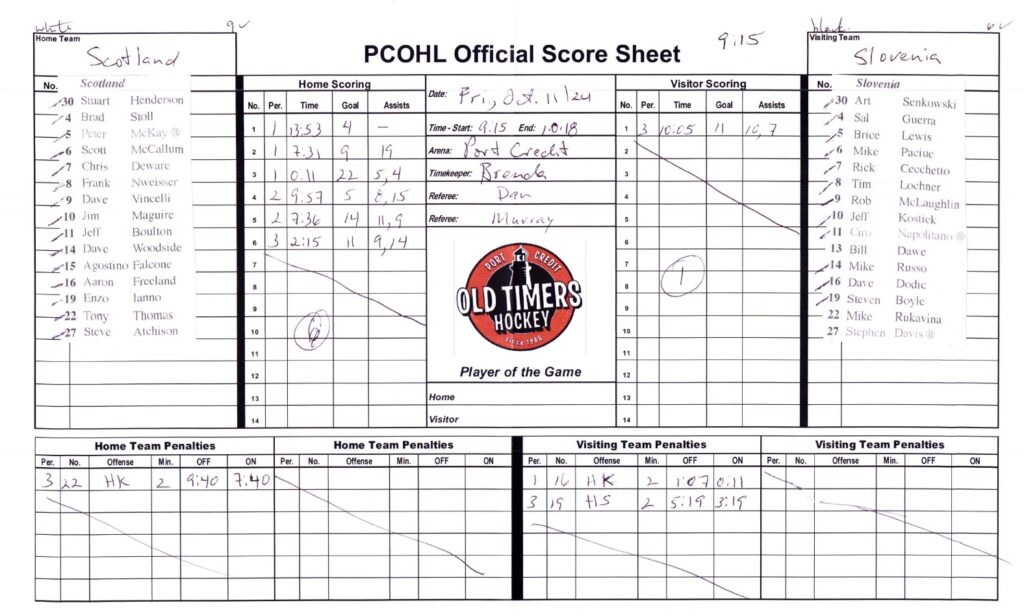 white 9✓
Home Team
Scotland
PCOHL Official Score Sheet
9:15
black 6✓
Visiting Team
Slovenia
No. Scotland
30 Stuart Henderson
4 Brad Stoll
5 Peter McKay ®
6 Scott McCallum
7 Chris Deware
8 Frank Nweisser
9 Dave Vincelli
10 Jim Maguire
11 Jeff Boulton
14 Dave Woodside
15 Agostino Falcone
16 Aaron Freeland
19 Enzo Ianno
22 Tony Thomas
27 Steve Atchison
Home Scoring
No. Per. Time Goal Assists
1 1 13:53 4 —
2 1 7:31 9 19
3 1 0.11 22 5,4
4 2 9:57 5 8,15
5 2 7:36 14 11,9
6 3 2:15 11 9,14
7
8
9
10
11
12
13
14
6
Date: Fri, Oct. 11/24
Time - Start: 9:15 End: 10:18
Arena: Port Credit
Timekeeper: Brenda
Referee: Dan
Referee: Murray
PORT CREDIT
OLD TIMERS
HOCKEY
Since 1986
Player of the Game
Home
Visitor
Visitor Scoring
No. Per. Time Goal Assists
1 3 10:05 11 10,7
2
3
4
5
6
7
8
9
10
11
12
13
14
1
No. Slovenia
30 Art Senkowski
4 Sal Guerra
5 Brice Lewis
6 Mike Paciuc
7 Rick Cecchetto
8 Tim Lochner
9 Rob McLaughlin
10 Jeff Kostick
11 Ciro Napolitano ®
13 Bill Dawe
14 Mike Russo
16 Dave Dodic
19 Steven Boyle
22 Mike Rukavina
27 Stephen Davis ®
Home Team Penalties
Per. No. Offense Min. OFF ON
3 22 HK 2 9:40 7:40
Home Team Penalties
Per. No. Offense Min. OFF ON
Visiting Team Penalties
Per. No. Offense Min. OFF ON
1 16 HK 2 1:07 0:11
3 19 HS 2 5:19 3:19
Visiting Team Penalties
Per. No. Offense Min. OFF ON